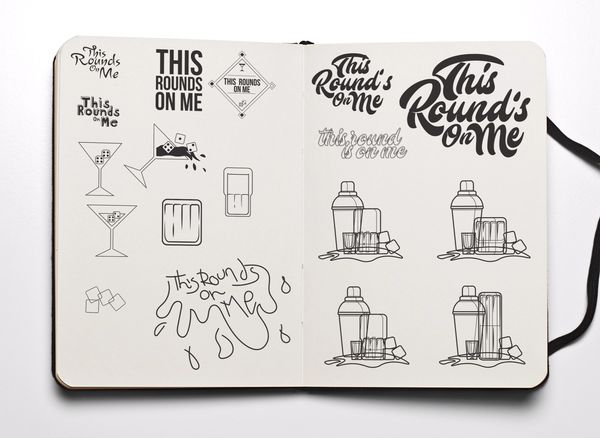 This
Rounds
On Me
This
Rounds
On Me
THIS
ROUNDS
ON ME
THIS ROUNDS
ON ME
This Rounds
on
Me
This
Round's
On Me
this round
is on me
This
Round's
On Me